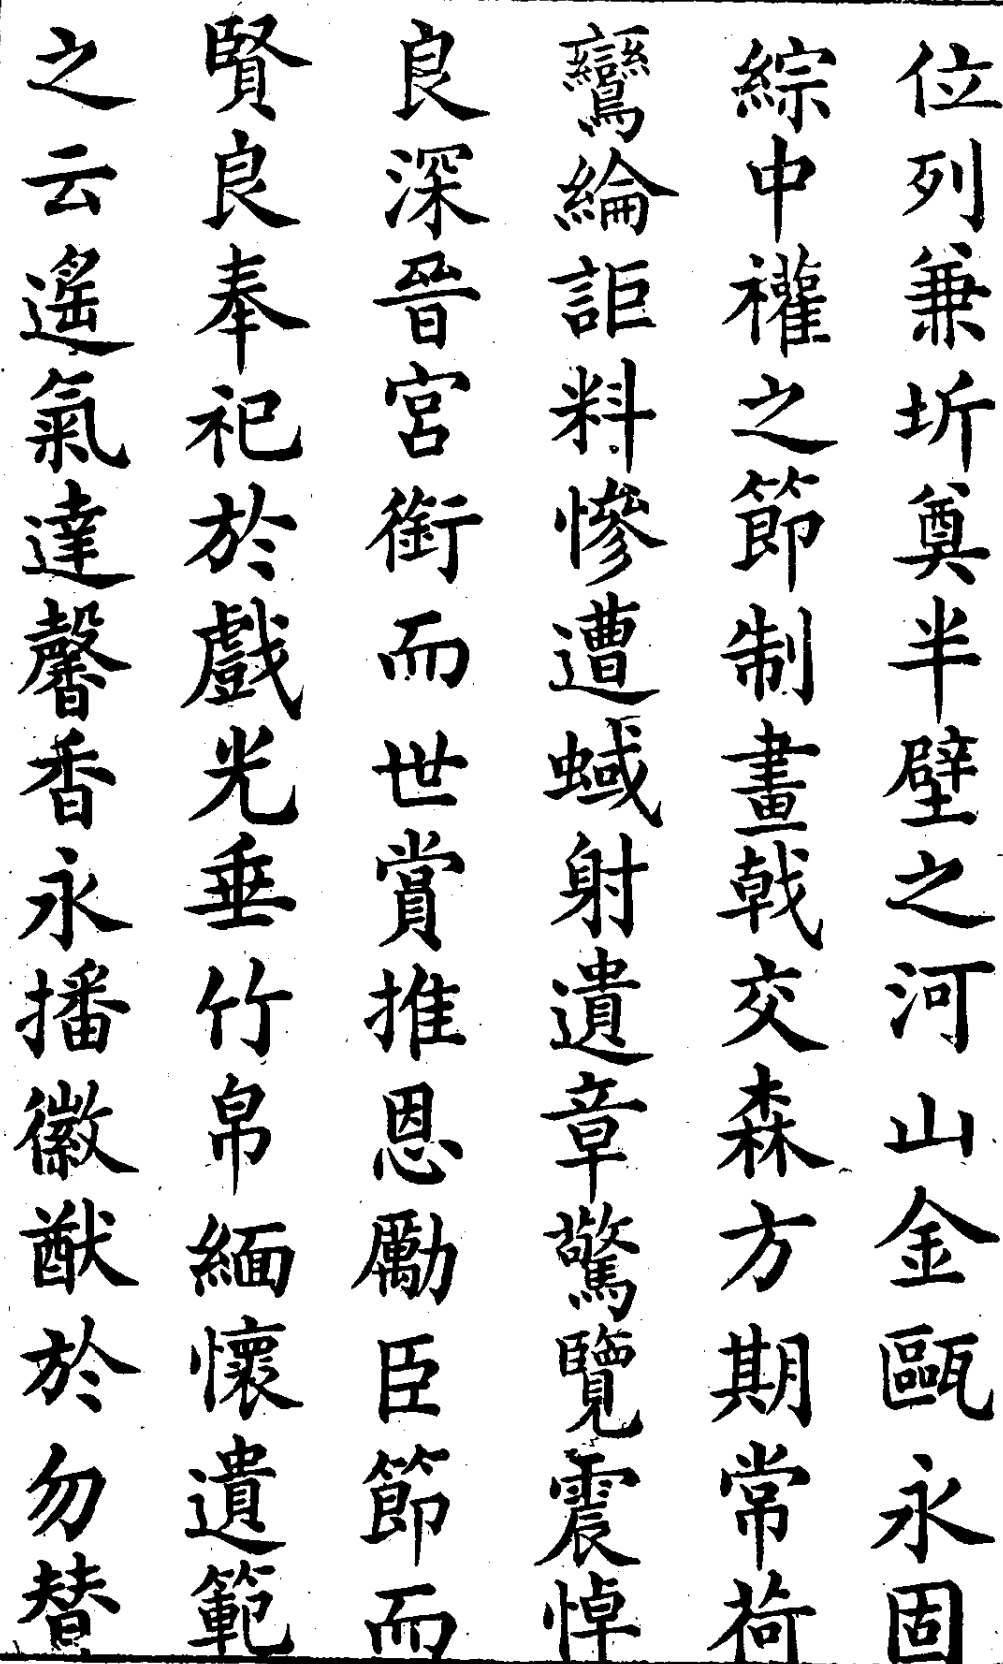 位列兼圻奠半壁之河山金甌永固
綜中權之節制畫戟交森方期常荷
鸞綸詎料慘遭蜮射遺章驚覽震悼
良深晉宮銜而世賞推恩勵臣節而
賢良奉祀於戲光垂竹帛緬懷遺範
之云遙氣達馨香永播徽猷於勿替